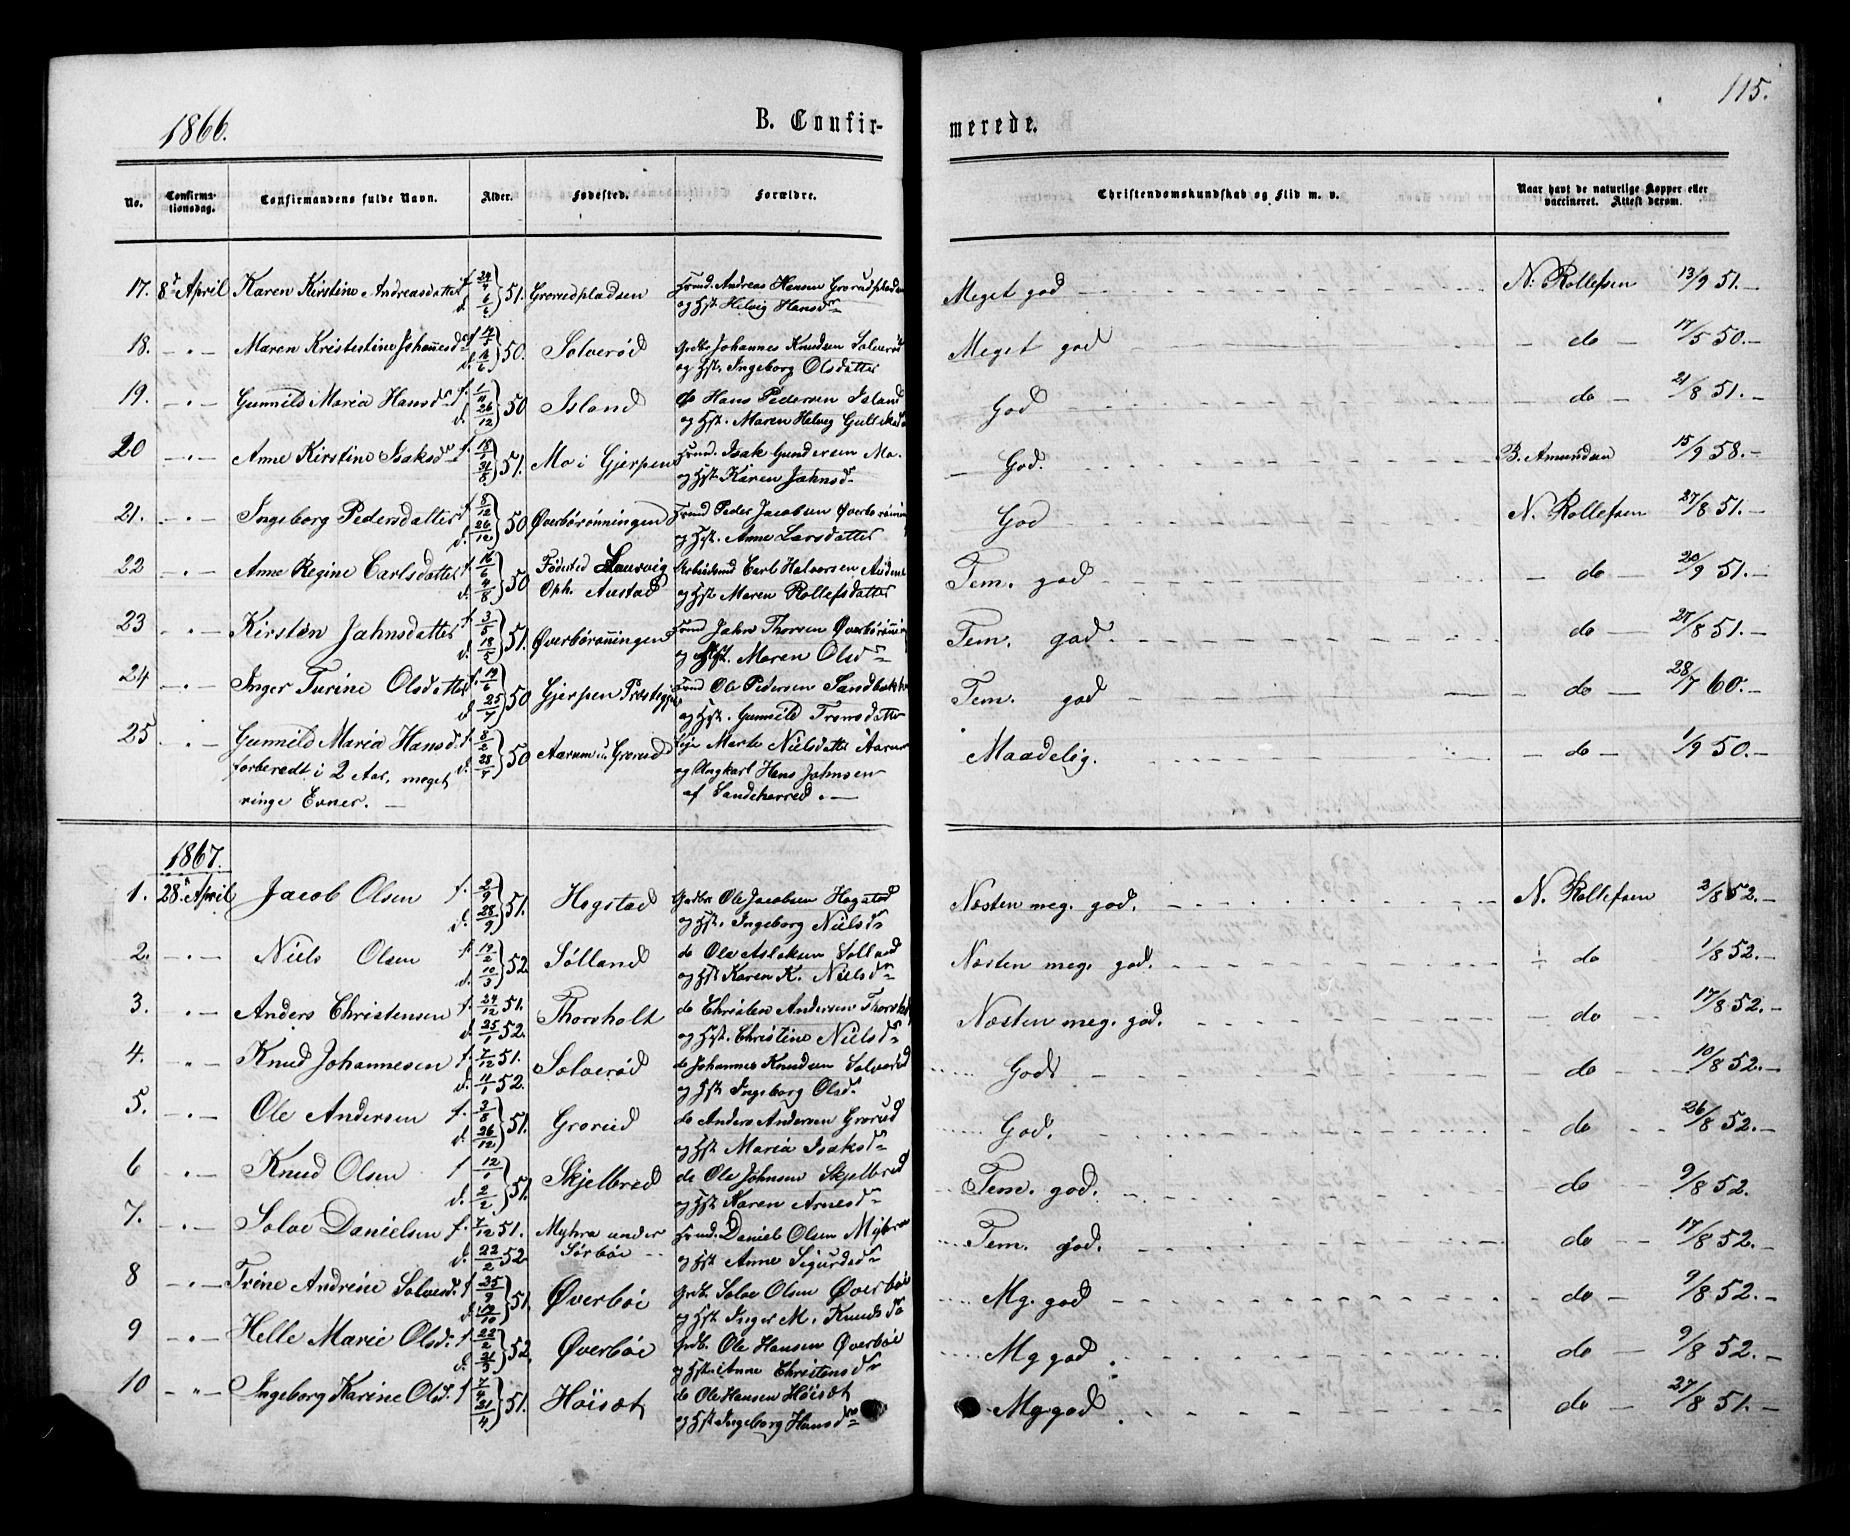 115.
1866.
B. Confir-
merede.
No.
Confirma-
tionsdag.
Confirmandens fulde Navn.
Alder.
Fødested.
Forældre.
Christendomskundskab og Flid m. v.
Naar havt de naturlige Kopper eller
vaccineret. Attest derom.
17. 8d April Karen Kirstine Andreasdatter f. d. 6/6 51. Grorudpladsen Andreas Hansen Grorudpladsen
og Hst Helvig Hansdr
Meget god N: Rollefsen 13/9 51.
18. " Maren Kristestine Johannesd f. d. 50. Solverød Grdb. Johannes Knudsen Solverød
og Hst. Ingeborg Olsdatter
Meget god do 17/5 50.
19. " Gunnild Maria Hansdr f. 1/11 d. 26/12 50 Island Hans Pedersen Island
og Hst. Maren Helvig
God do 21/8 51.
20 " Anne Kirstine Isaksdr f. 18/1 d. 31/5 51. Mo i Gjerpen Hmd. Isak Gundersen Mo.
og Hst Karen Jahnsdr
God. B. Amundsen 15/9 58.
21. " Ingeborg Pedersdatter f. 5/12 d. 26/12 50 Øverbørønningen Hmd Peder Jacobsen
og Hst. Anne Larsdatter
God N. Rollefsen 27/8 51.
22 " Anne Regine Carlsdatter f. 16/6 d. 4/8 50 Fødested Laurvig
Oph. Austad
Carl Halvorsen
og Hst Maren Rollefsdatter
Tem. god do 20/9 51.
23 " Kirsten Jahnsdatter f. 3/5 d. 18/5 51. Øverbørønningen Hmd Jahn Thorsen
og Hst. Maren Olsdr
Tem. god. do 27/8 51.
24 " Inger Turine Olsdatter f. 19/6 d. 25/7 50 Gjerpen Hmd Ole Pedersen
og Hst. Gunnild
Tem. god do 28/7 60.
25 " Gunnild Maria Hansd. f. 5/2 d. 50 Aarum u. Grorud Pige Marte Nielsdatter Aarum
forberedt i 2 Aar, meget
ringe Evner.
og Ungkarl Hans Johnsen
af Sandeherred.
Maadelig. do 1/9 50.
1867.
1. 28de April Jacob Olsen f. 2/9 d. 28/9 51. Hogstad Grdbr Ole Jacobsen Hogstad
og Hst. Ingeborg Nielsdr
Næsten meg. god. N. Rollefsen 2/8 52.
2. " Niels Olsen f. 19/2 d. 10/3 52 Sølland do Ole Aslaksen Solland
og Hst Karen K. Nielsdr
Næsten meg. god. do 1/8 52.
3. " Anders Christensen f. 24/12 51. d. 25/1 52. Thorsholt do Christen Andersen
og Hst. Christine Nielsdr
Næsten meg. god. do 17/8 52.
4. " Knud Johannesen f. 7/12 51. d. 11/1 52. Solverød do Johannes Knudsen Solverød
og Hst Ingeborg Olsd.
Godt do 10/8 52.
5. " Ole Andersen f. 3/8 d. 26/12 51. Grorud do Anders Andersen Grorud
og Hst Maria Isaksdr
God. do 26/8 52.
6 " Knud Olsen f 12/1 d. 2/2 51. Skjelbred do Ole Johnsen Skjelbred
og Hst Karen Arnesdr
Tem. god. do 9/8 52.
7. " Solve Danielsen f. 7/12 51. d. 22/2 52 Myhra under
Sørbøe
Hmd. Daniel Olsen Myhra
og Hst Anne Sigurdsdr
Tem. god. do 17/8 52.
8 " Trine Andrine Solvesd. f 25/9 d. 19/10 51. Øverbøe Grdb. Solve Olsen Øverbøe
og Hst Inger M. Knudsdr
Mg. god do 9/8 52.
9 " Helle Marie Olsd. f 22/2 d. 21/3 52 Øverbøe Grdb. Ole Hansen Øverbøe
og Hst. Anne Christensdr
Mg god. do 9/8 52.
10 " Ingeborg Karine Olsd. f 7/4 21/4 51. Høisæt do Ole Hansen Høisæt
og Hst Ingeborg Hansdr
Mg. god. do 27/8 51.